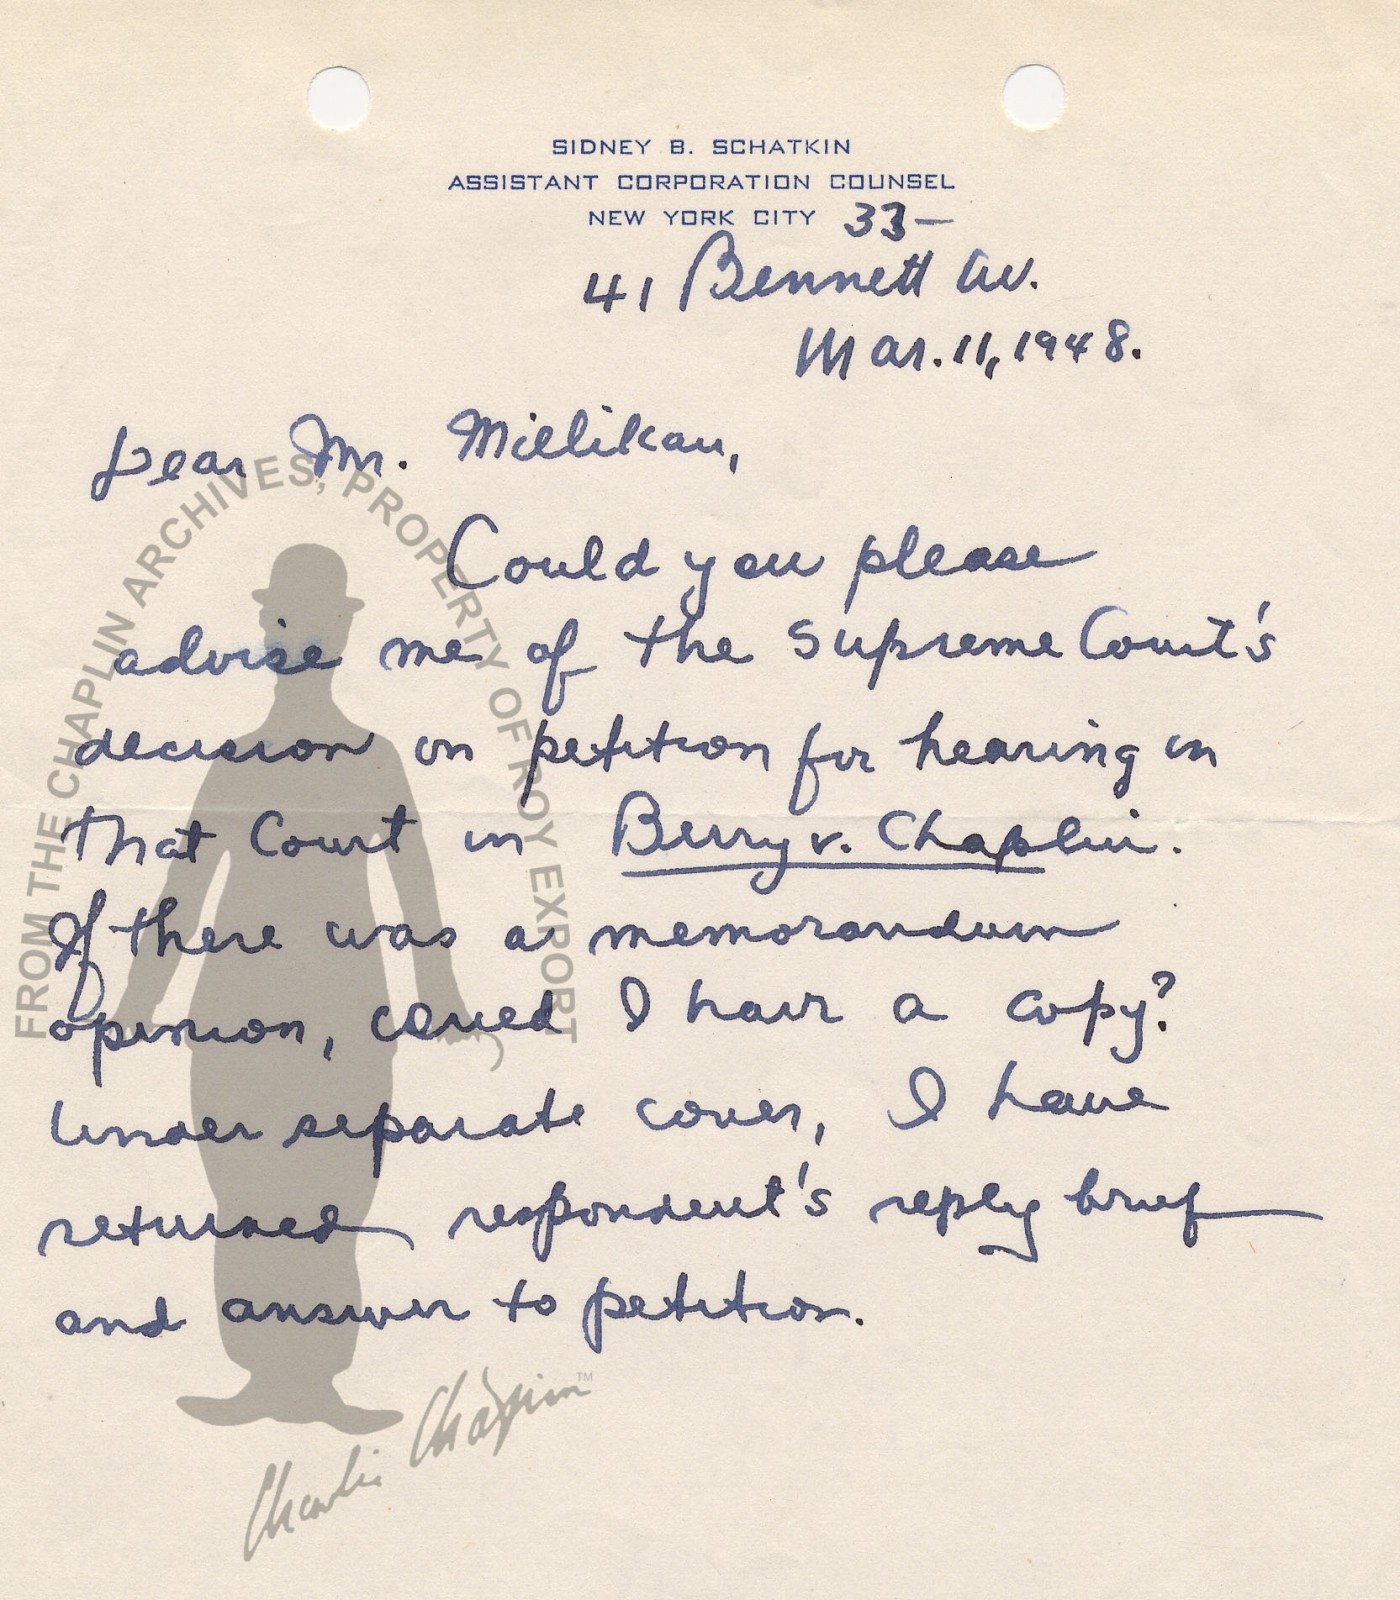 SIDNEY B. SCHATKIN
ASSISTANT CORPORATION COUNSEL
NEW YORK CITY 33—
41 Bennett Av.
Mar. 11, 1948.
Dear Mr. Millikan,
Could you please
advise me of the Supreme Court's
decision on petition for hearing in
that Court in Berry v. Chaplin.
If there was a memorandum
opinion, could I have a copy?
Under separate cover, I have
returned respondent's reply brief
and answer to petition.
FROM THE CHAPLIN ARCHIVES, PROPERTY OF ROY EXPORT
Charlie Chaplin™